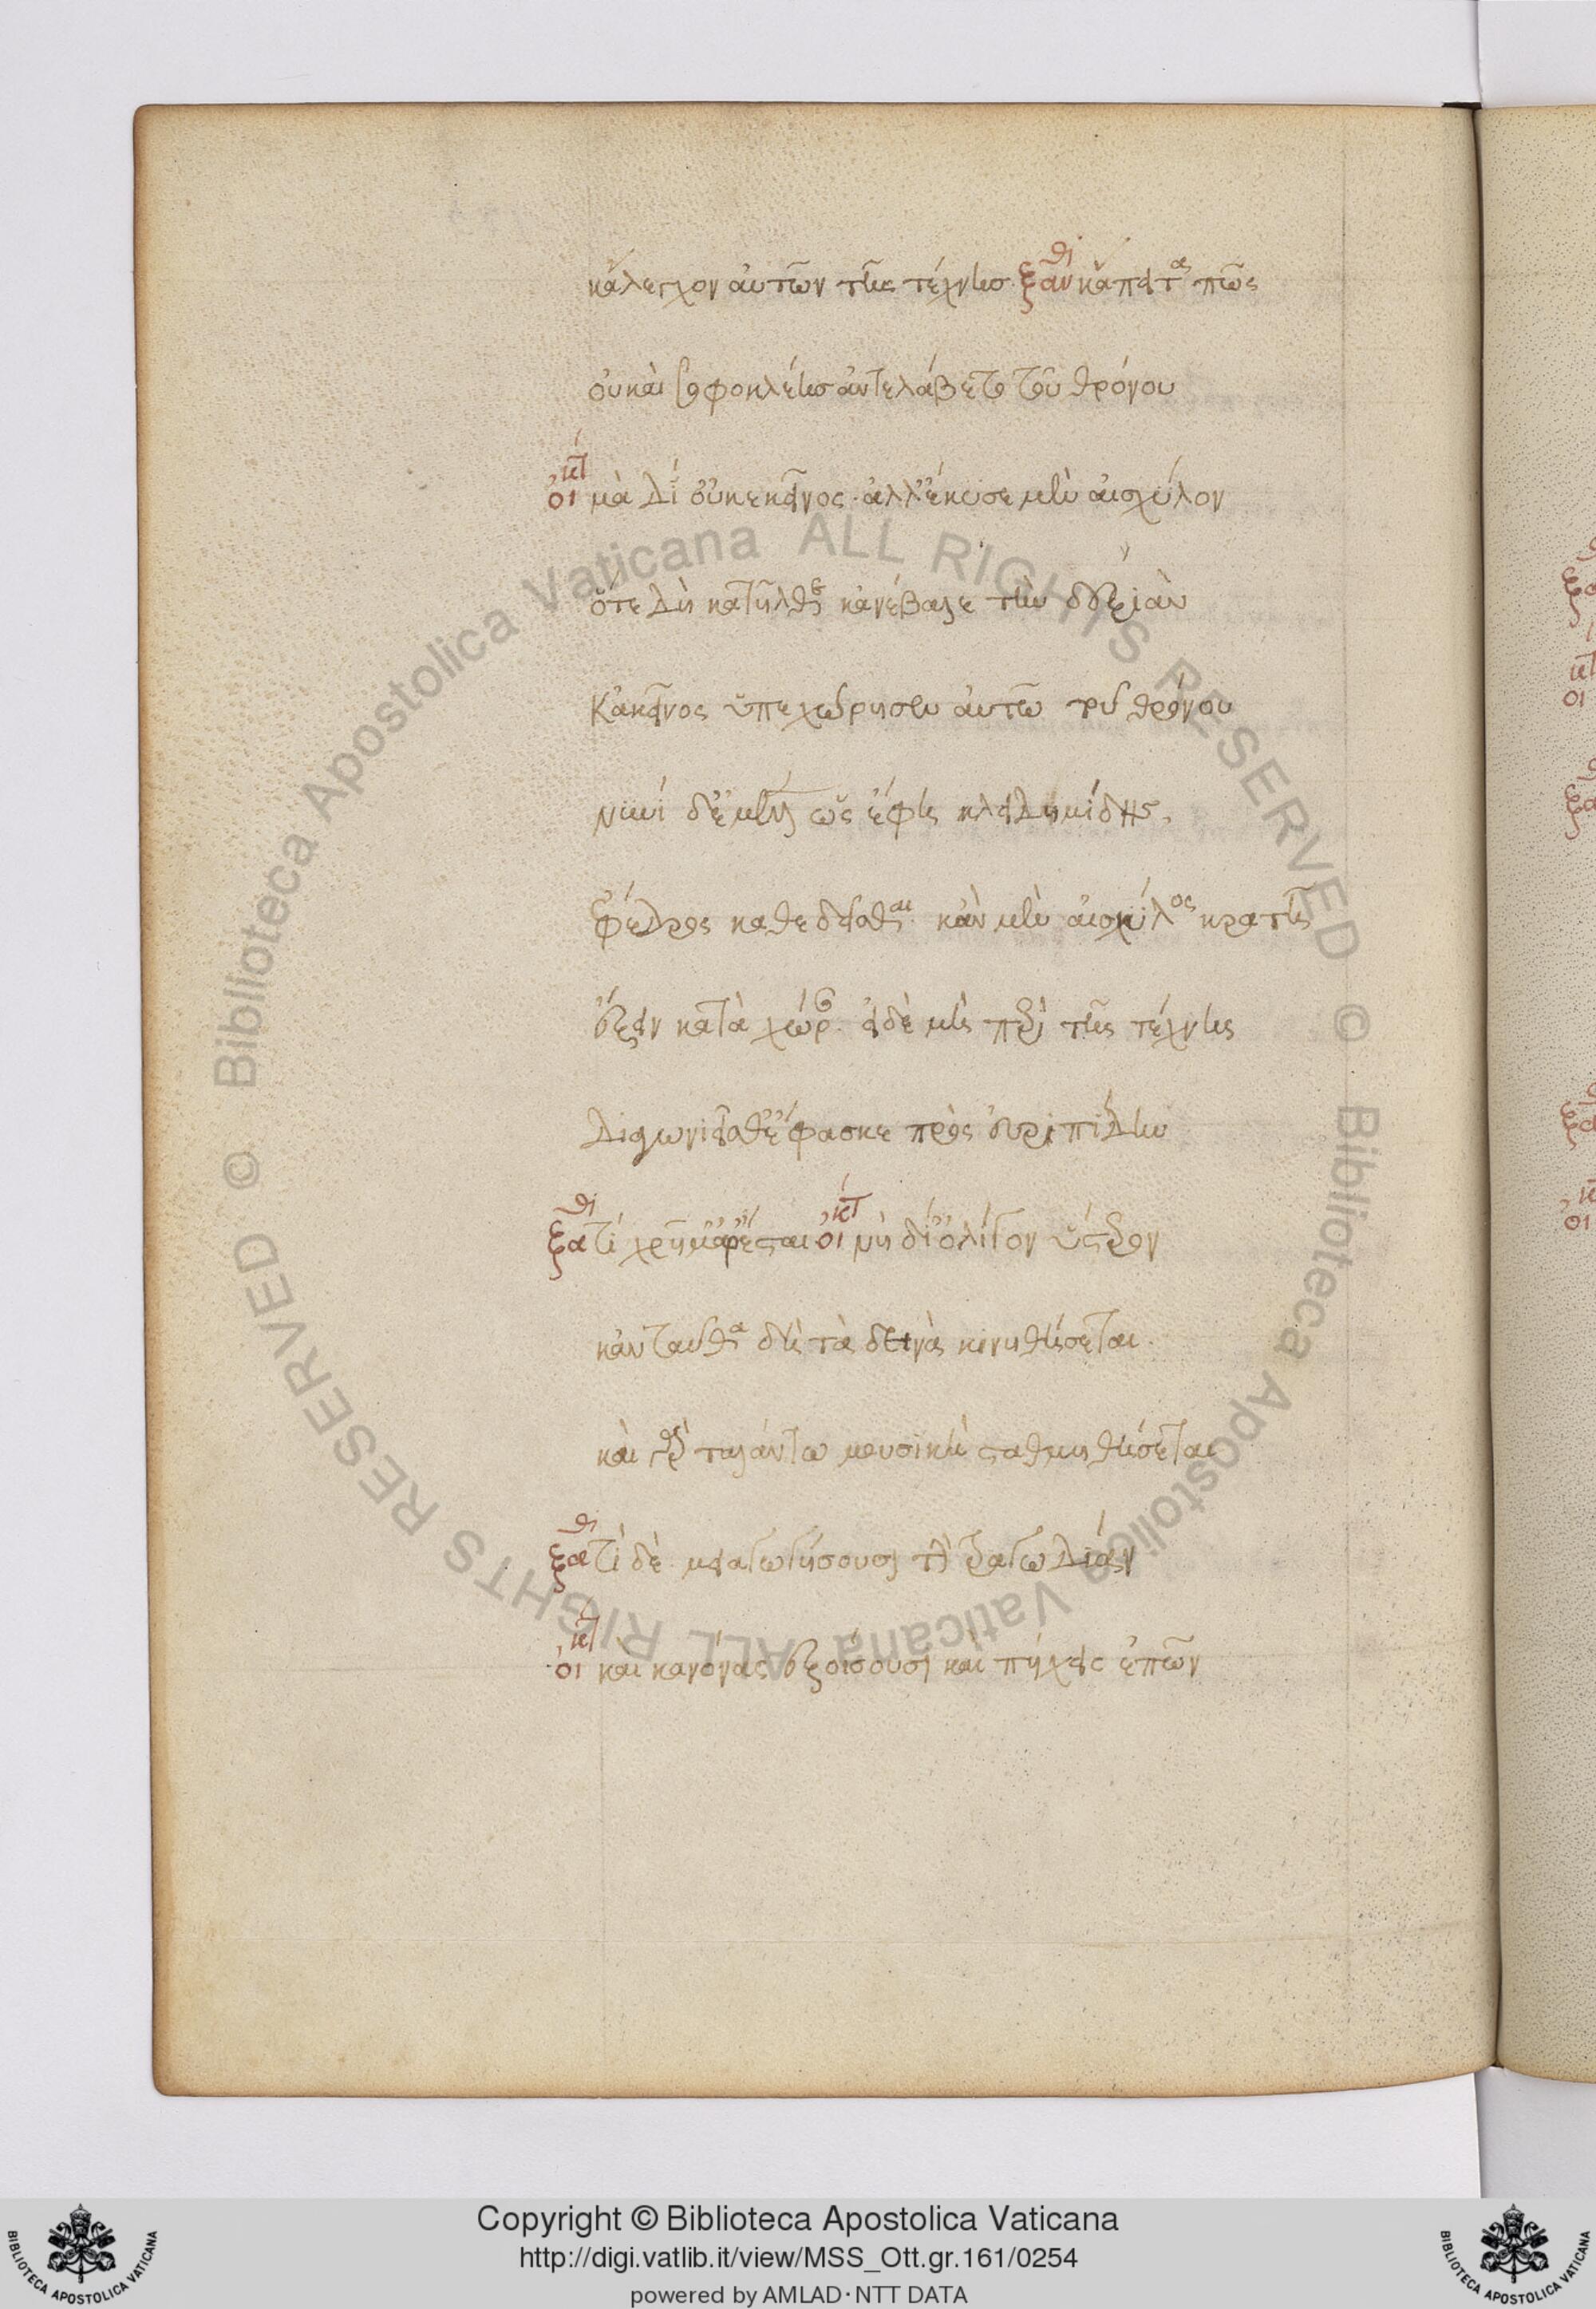 κἄλεγχον αὐτῶν τῆς τέχνης. ξαν θι κἄπειτα πῶς
οὐ καὶ σοφοκλέης ἀντελάβετο τοῦ θρόνου
οἰκτ μὰ Δί οὐκ ἐκεῖνος. ἀλλ' ἔκυσε μὲν αἰσχύλον
ὅτε δὴ κατῆλθε κἀνέβαλε τὴν δεξιὰν
κἀκεῖνος ὑπεχώρησεν αὐτῶ τοῦ θρόνου
νυνί δ' ἔμελλεν ὡς ἔφη κλειδημίδης.
ἔφεδρος καθεδεῖσθαι. κἂν μὲν αἰσχύλος κρατῆ
ἕξειν κατὰ χώραν. εἰ δὲ μὴ περὶ τῆς τέχνης
διαγωνιεῖσθ' ἔφασκε πρὸς εὐριπίδην
ξα θι τί χρῆμ' ἄρ' ἔσται οἰκτ νὴ δί' ὀλίγον ὕστερον
κἀνταῦθα δὴ τὰ δεινὰ κινηθήσεται.
καὶ γὰρ ταλάντω μουσικὴ σταθμηθήσεται
ξα θι τί δὲ μειαγωγήσουσι τὴν τραγωδίαν
οἰκτ καὶ κανόνας ἐξοίσουσι καὶ πήχεις ἐπῶν
© Biblioteca Apostolica Vaticana ALL RIGHTS RESERVED © Biblioteca Apostolica Vaticana ALL RIGHTS RESERVED
Copyright © Biblioteca Apostolica Vaticana
http://digi.vatlib.it/view/MSS_Ott.gr.161/0254
powered by AMLAD·NTT DATA
BIBLIOTECA APOSTOLICA VATICANA
BIBLIOTECA APOSTOLICA VATICANA